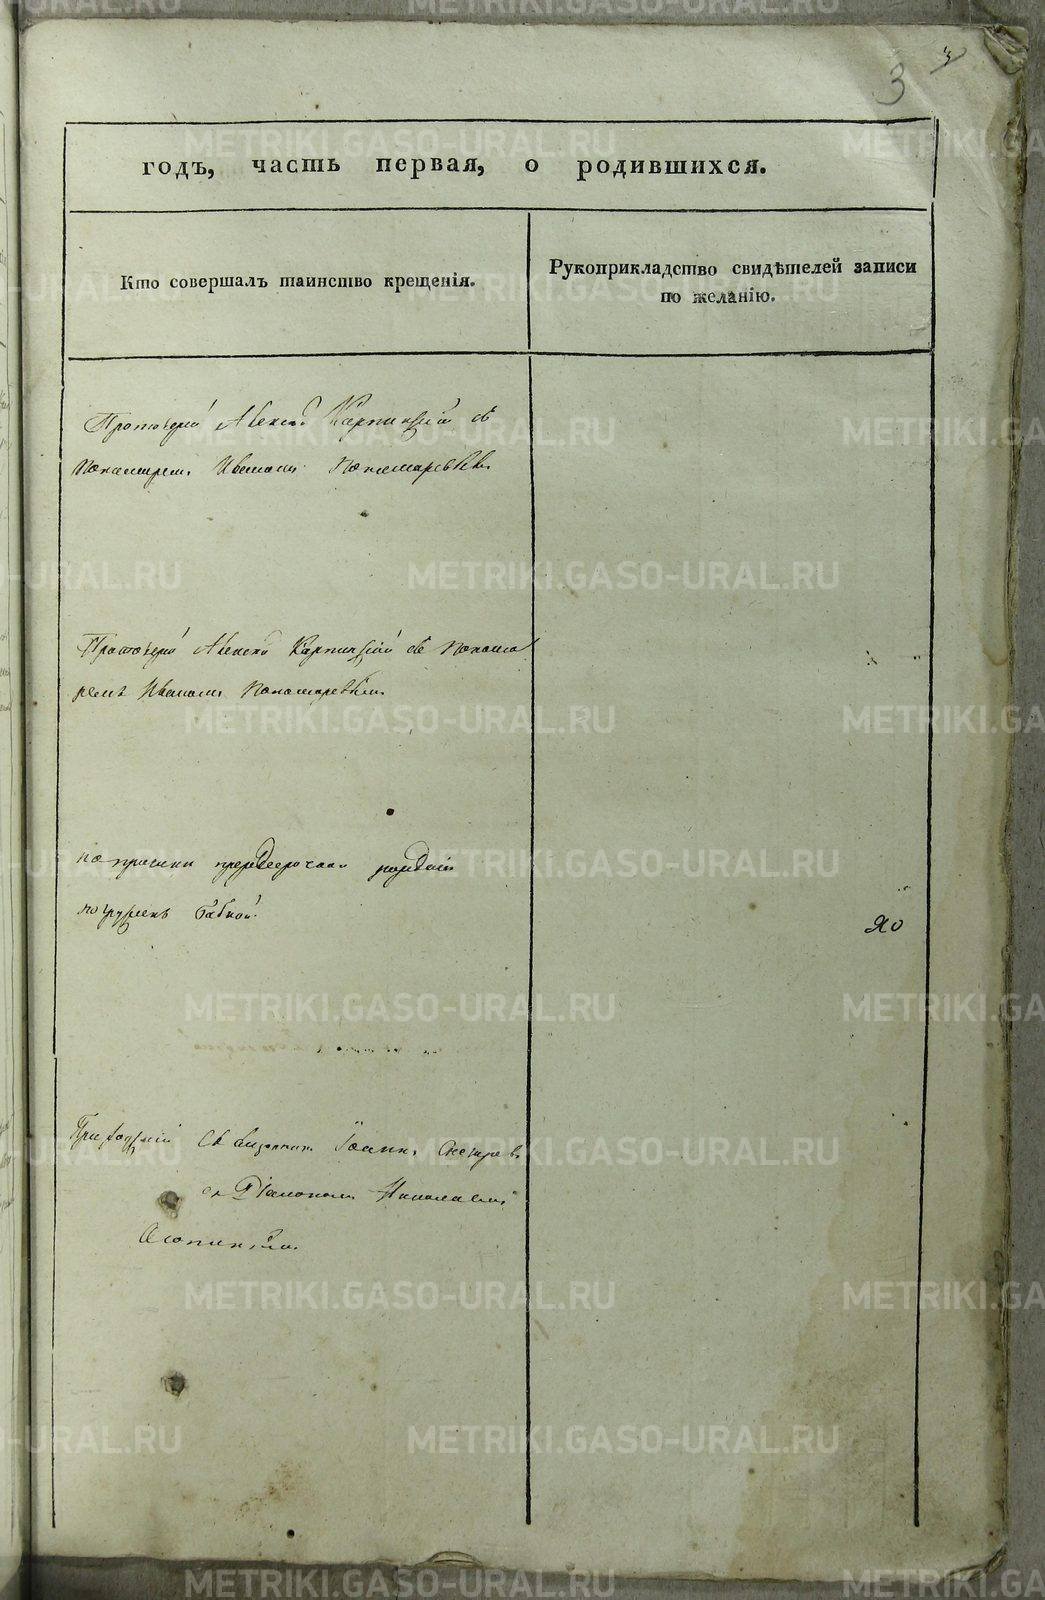 3
годъ, часть первая, о родившихся.
Кто совершалъ таинство крещенія.
Рукоприкладство свидѣтелей записи
по желанію.
Протоіерей Алексѣй Карпинскій съ
Пономаремъ Иваномъ Пономаревымъ
Протоіерей Алексѣй Карпинскій съ Понома
ремъ Иваномъ Пономаревымъ
по причинѣ
погруженъ бабкой.
Приходскій Священникъ Іоаннъ
съ Діакономъ Николаемъ
METRIKI.GASO-URAL.RU